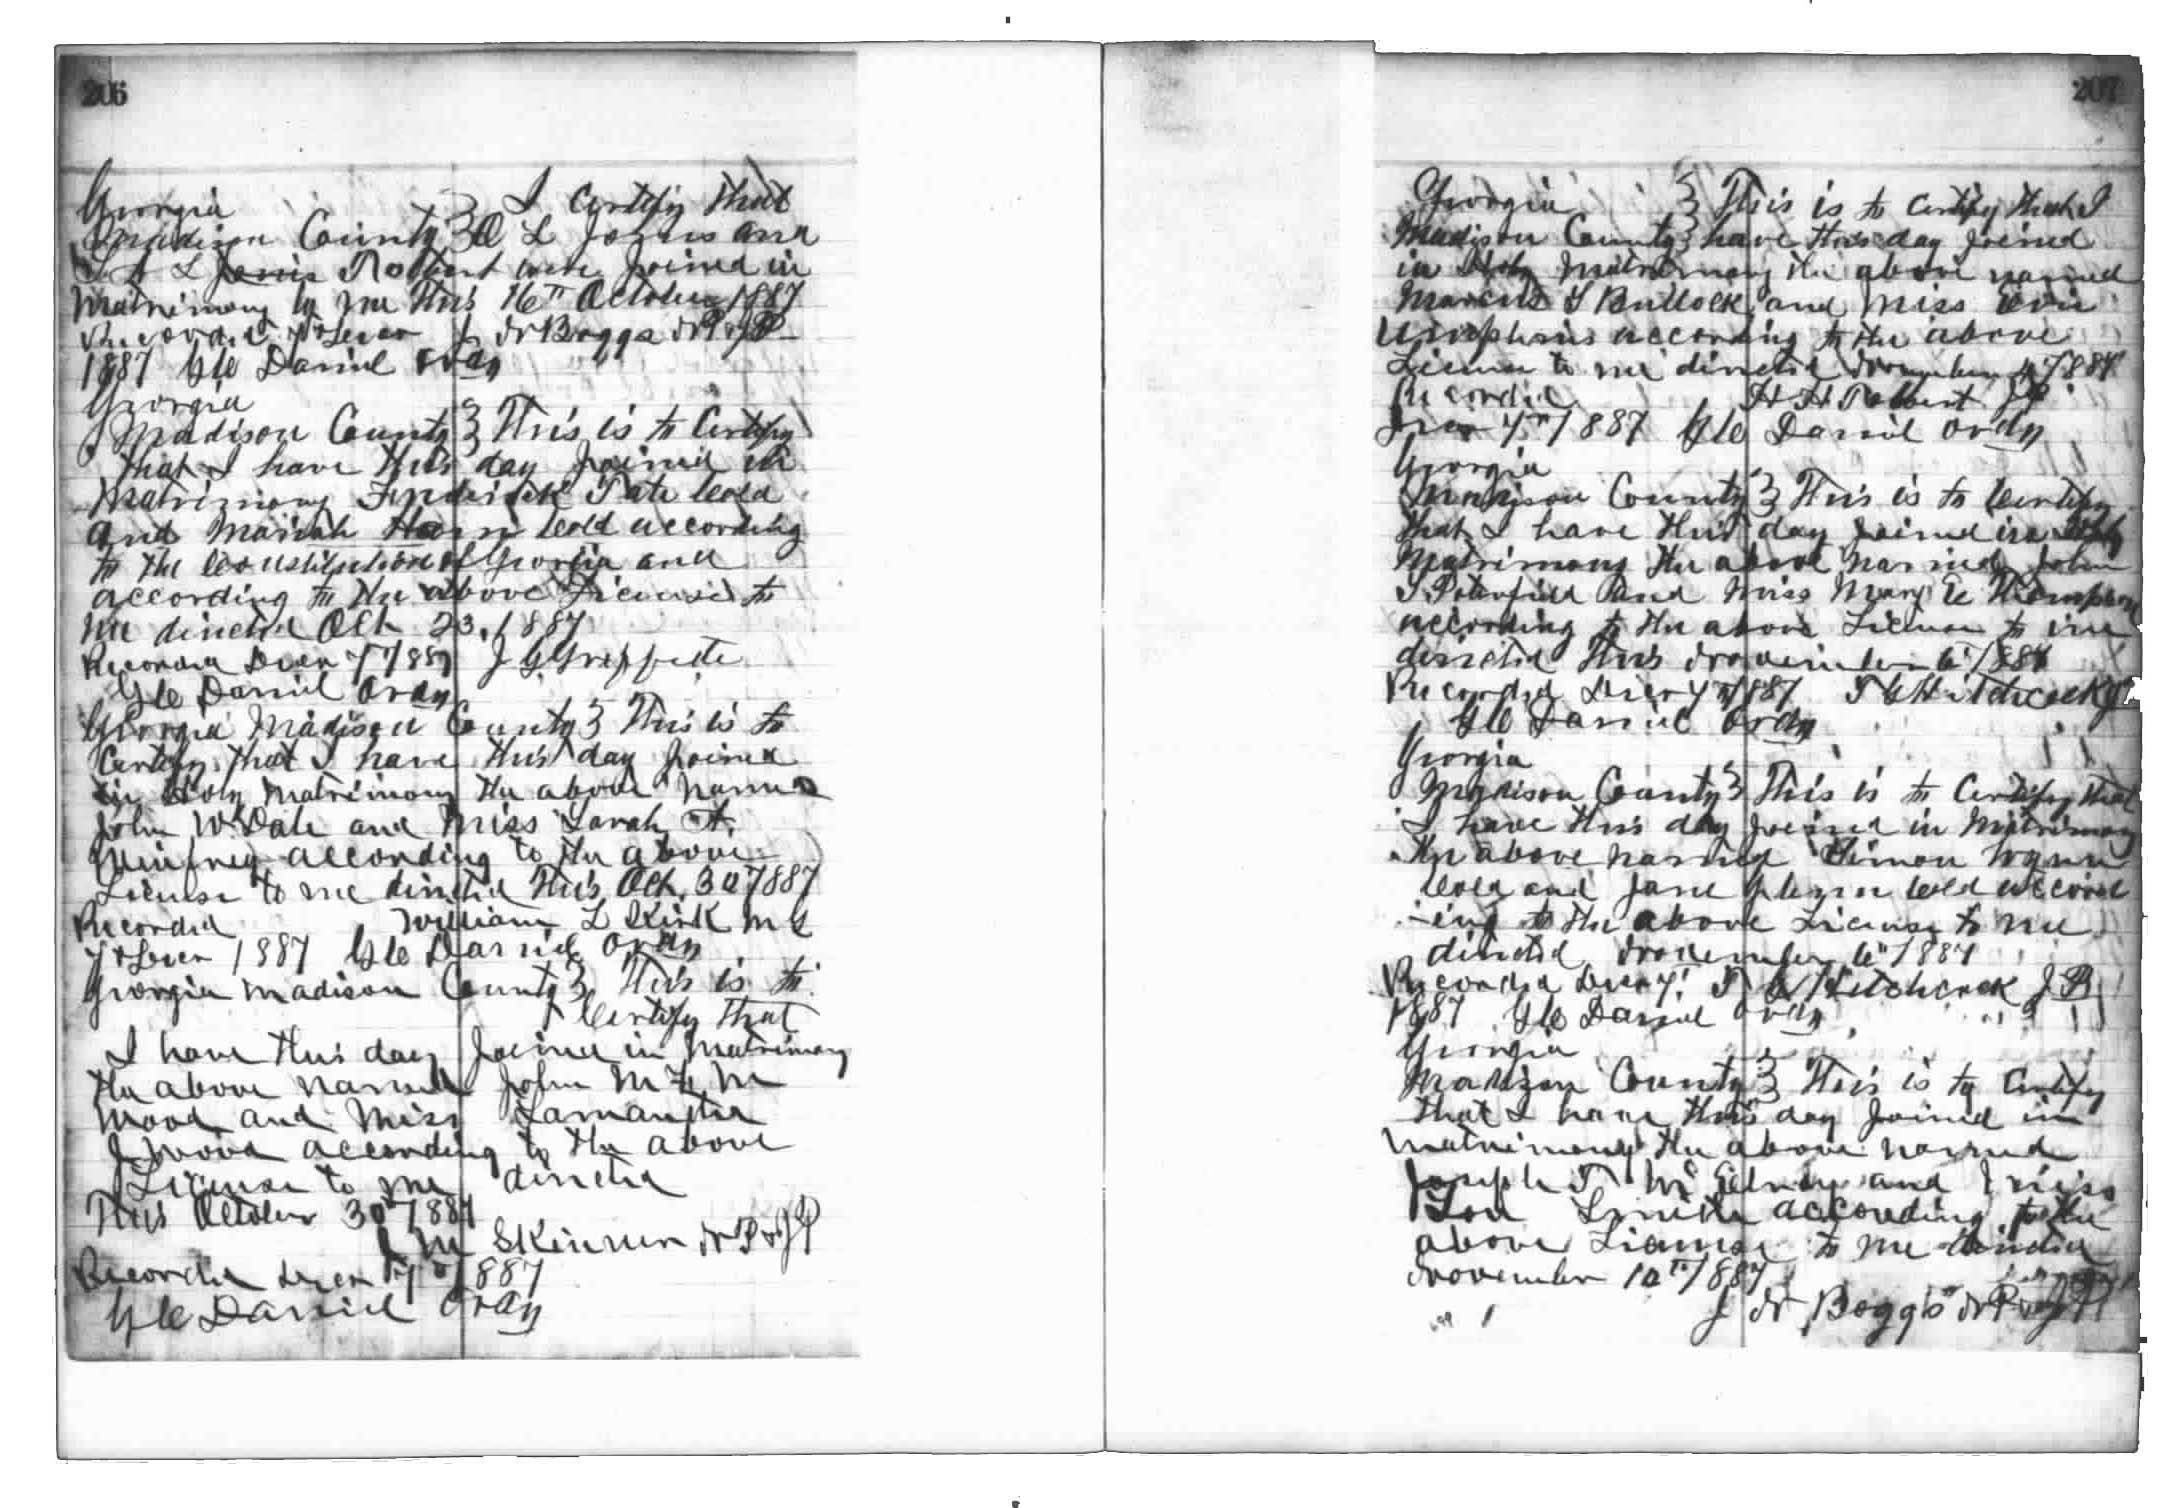 206
Georgia I Certify that
Madison County } O L Jones and
S A L Jonis Tolbert were Joined in
Matrimony by me This 16th October 1887
Recorded 7th Decr J N Boggs N P & JP
1887 G C Daniel Ordy
Georgia
Madison County } This is to Certify
that I have this day Joined in
Matrimony Frederick Tate Cold
and Mariah Cold according
to the Constitution of Georgia and
according to the above License to
me directed Oct 23. 1887
Recorded Decr 7th 1887 J G
G C Daniel Ordy
Georgia Madison County } This is to
Certify that I have this day Joined
in Holy Matrimony the above named
John W Dale and Miss Sarah A.
Winfrey according to the above
License to me directed This Oct. 30 1887
Recorded William L Skirk M G
7th Decr 1887 G C Daniel Ordy
Georgia Madison County } This is to
Certify that
I have this day Joined in Matrimony
the above named John M
Wood and Miss Samantha
J Wood according to the above
License to me directed
This October 30th 1887
J M Skinner N P & JP
Recorded Decr 7th 1887
G C Daniel Ordy
207
Georgia } This is to Certify that I
Madison County } have this day Joined
in Holy Matrimony the above named
Marcus S Bullock and Miss
according to the above
License to me directed November 1887
Recorded H H Tolbert JP
Decr 7th 1887 G C Daniel Ordy
Georgia
Madison County } This is to Certify
that I have this day Joined in Holy
Matrimony the above named John
S Poterfield and Miss Mary E Thompson
according to the above License to me
directed This November 6th 1887
Recorded Decr 7th 1887 T G Hitchcock JP
G C Daniel Ordy
Georgia
Madison County } This is to Certify that
I have this day Joined in Matrimony
the above named Simon Wynn
Cold and Jane Glenn Cold accord
ing to the above License to me
directed November 6th 1887
Recorded Decr 7th T G Hitchcock J P
1887 G C Daniel Ordy
Georgia
Madison County } This is to Certify
that I have this day Joined in
matrimony the above named
Joseph T McElroy and Miss
Lou Smith according to the
above License to me directed
November 10th 1887
J N Boggs N P & JP